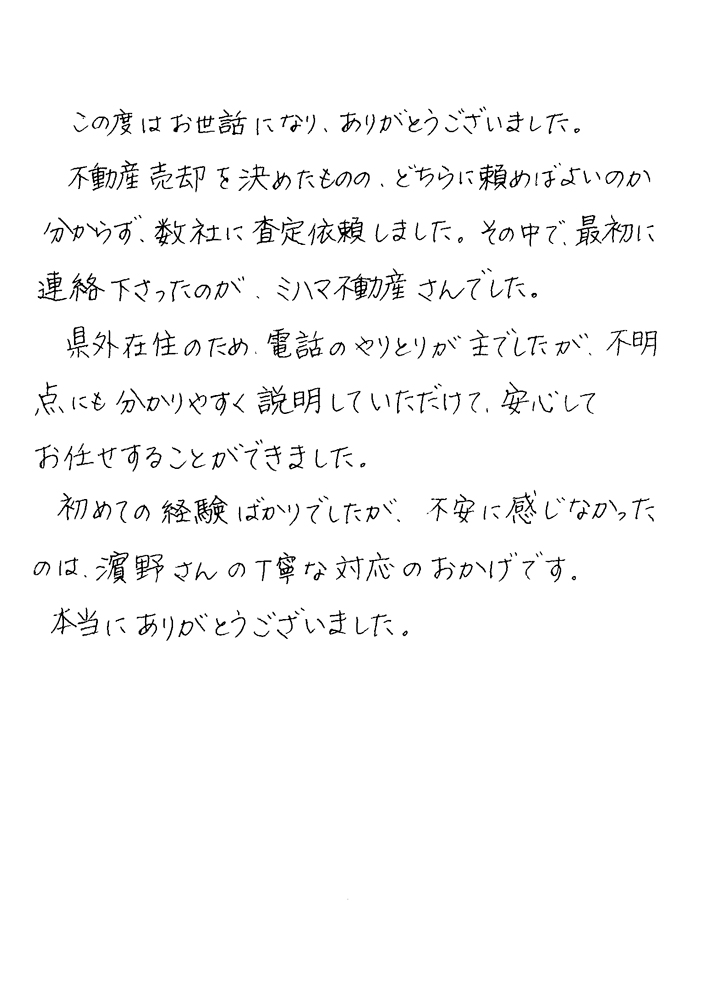 この度はお世話になり、ありがとうございました。
不動産売却を決めたものの、どちらに頼めばよいのか
分からず、数社に査定依頼しました。その中で、最初に
連絡下さったのが、ミハマ不動産さんでした。
県外在住のため、電話のやりとりが主でしたが、不明
点にも分かりやすく説明していただけて、安心して
お任せすることができました。
初めての経験ばかりでしたが、不安に感じなかった
のは、濱野さんの丁寧な対応のおかげです。
本当にありがとうございました。